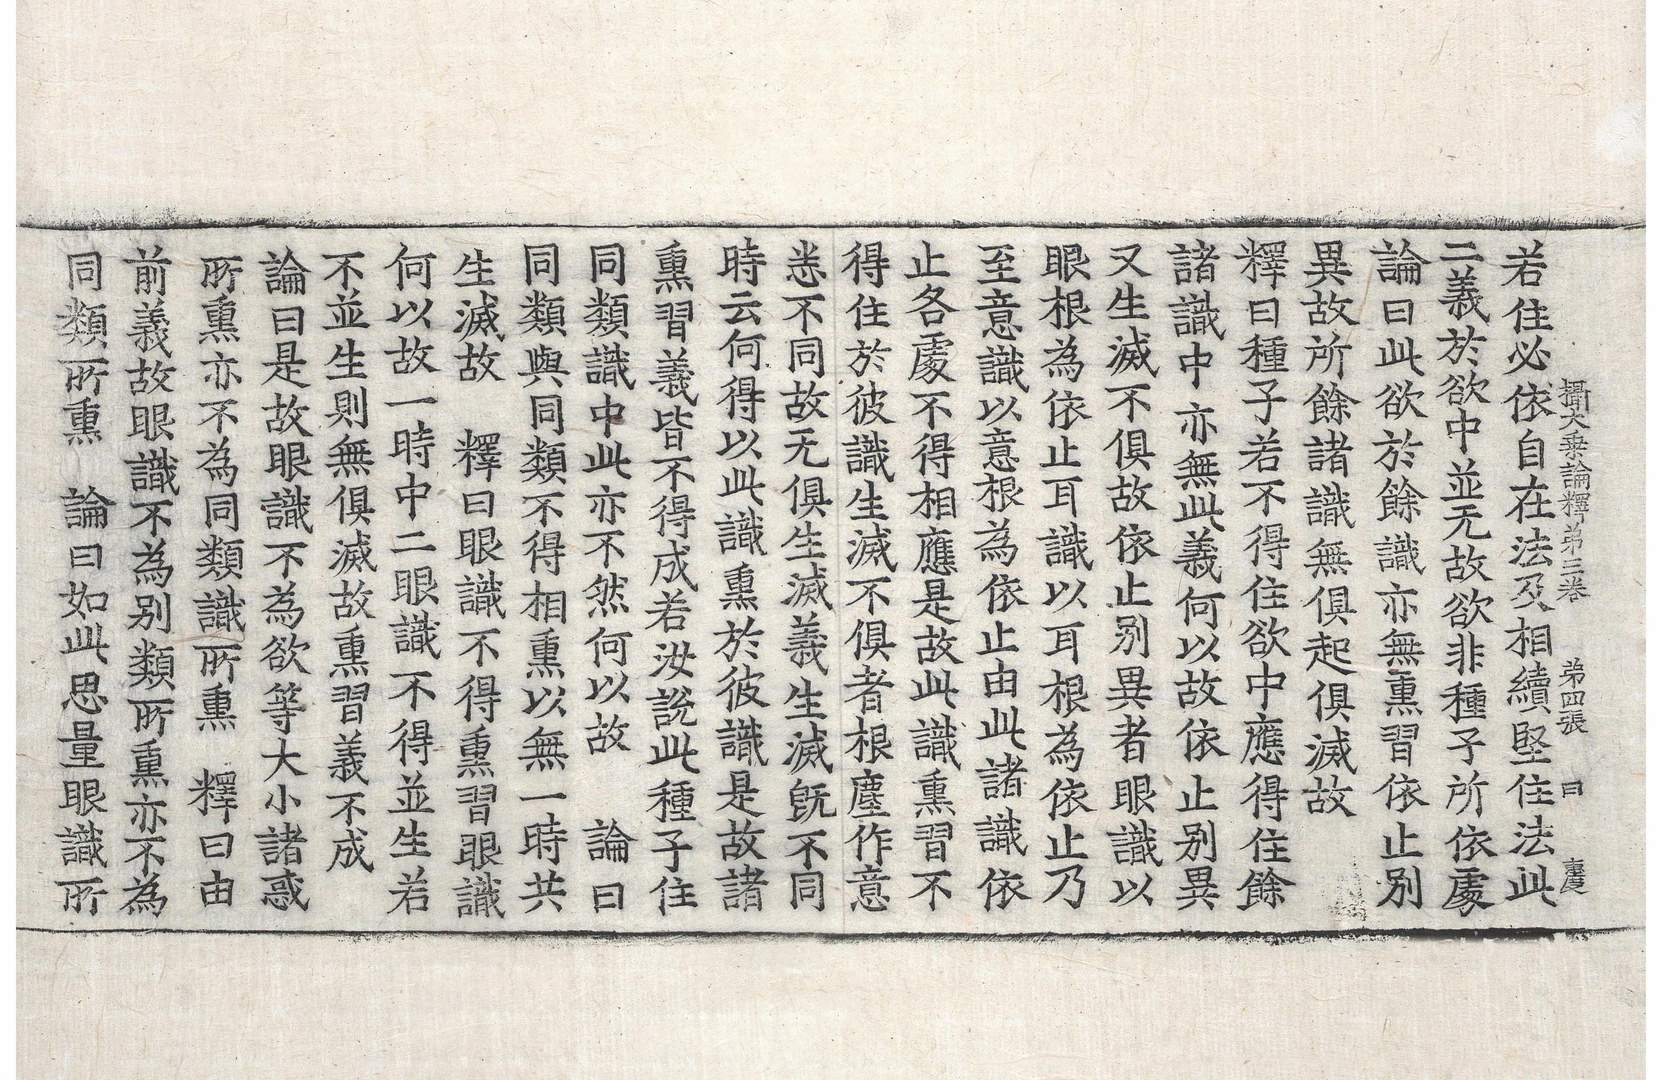 攝大乗論釋苐三卷　苐四張　曰　㐮
若住必依自在法及相續堅住法此
二義於欲中並无故欲非種子所依處
論曰此欲於餘識亦無熏習依止別
異故所餘諸識無俱起俱滅故
釋曰種子若不得住欲中應得住餘
諸識中亦無此義何以故依止別異
又生滅不俱故依止別異者眼識以
眼根為依止耳識以耳根為依止乃
至意識以意根為依止由此諸識依
止各處不得相應是故此識熏習不
得住於彼識生滅不俱者根塵作意
悉不同故无俱生滅義生滅旣不同
時云何得以此識熏於彼識是故諸
熏習義皆不得成若汝說此種子住
同類識中此亦不然何以故　論曰
同類與同類不得相熏以無一時共
生滅故　釋曰眼識不得熏習眼識
何以故一時中二眼識不得並生若
不並生則無俱滅故熏習義不成
論曰是故眼識不為欲等大小諸惑
所熏亦不為同類識所熏　釋曰由
前義故眼識不為別類所熏亦不為
同類所熏　論曰如此思量眼識所